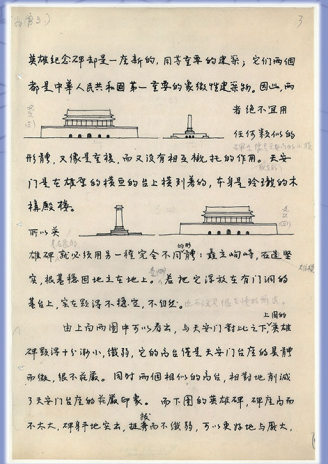 3
英雄纪念碑却是一座新的,同等重要的建築;它们两個
都是中華人民共和国第一重要的象徵性建築物。因此,两
者绝不宜用
任何類似的
形體,又像是重複,而又没有相互襯托的作用。天安
门是在雄厚的横亘的台上横列着的,本身是玲瓏的木
構殿樓。
所以英
雄碑就必须用另一種完全不同的形體:矗立峋峙,
實,根基穩固地立在地上。若把它浮放在有门洞的
基台上,实在顯得不穩定,不自然。
由上面两图中可以看出,与天安门對比之下,上图的英雄
碑顯得十分渺小,纖弱,它的高台僅是天安门台座的具體
而微,很不莊嚴。同时两個相似的高台,相對地削減
了天安门台座的莊嚴印象。而下图的英雄碑,碑座高而
不太大,碑身平地突出,挺拔而不纖弱,可以更好地与庞大,